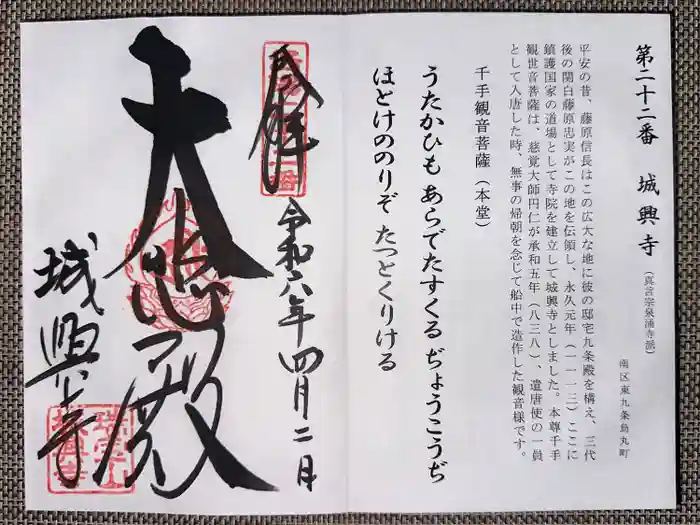 第二十二番 城興寺
(真言宗泉涌寺派)
南区東九条烏丸町
平安の昔、藤原信長はこの広大な地に彼の邸宅九条殿を構え、三代
後の関白藤原忠実がこの地を伝領し、永久元年(一一一三)ここに
鎮護国家の道場として寺院を建立して城興寺としました。本尊千手
観世音菩薩は、慈覚大師円仁が承和五年(八三八)、遣唐使の一員
として入唐した時、無事の帰朝を念じて船中で造作した観音様です。
千手観音菩薩(本堂)
うたかひも あらでたすくる ぢょうこうぢ
ほとけののりぞ たつとくりける
奉拝
令和六年四月二日
大悲殿
城興寺